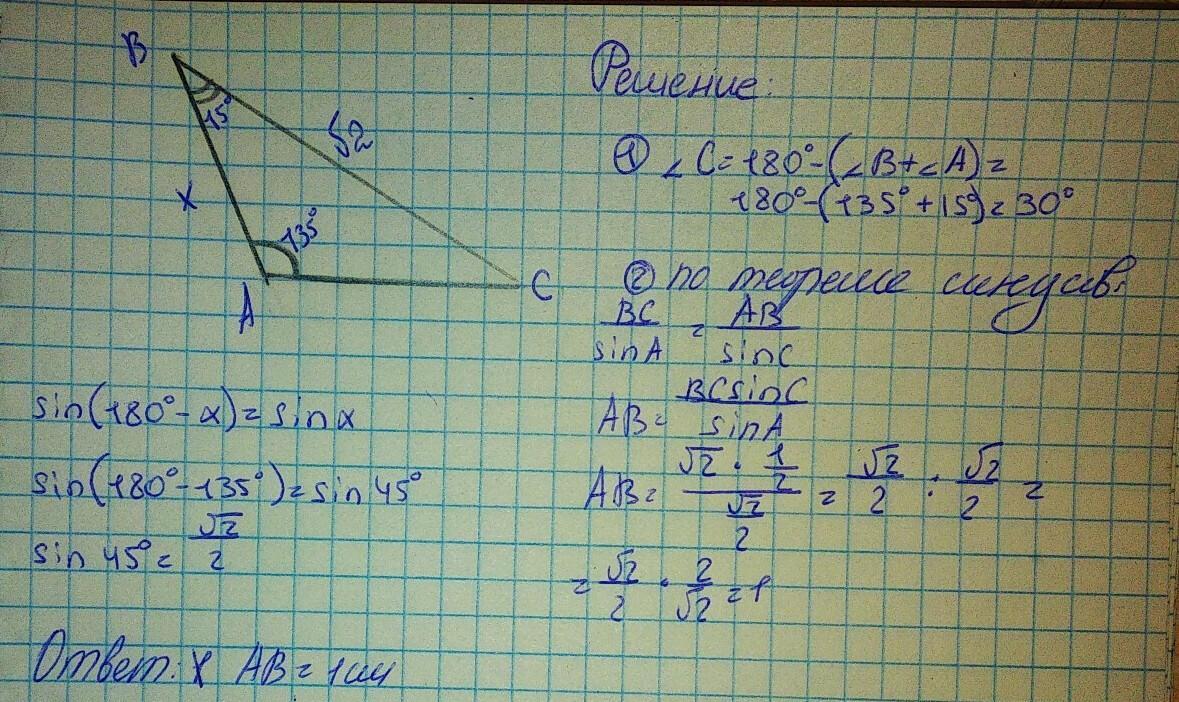 B
15°
√2
X
135°
A
C
Решение:
① ∠C = 180° - (∠B + ∠A) =
180° - (135° + 15°) = 30°
② по теореме синусов:
BC/sinA = AB/sinC
AB = BCsinC/sinA
AB = (√2 · 1/2)/(√2/2) = √2/2 : √2/2 =
= √2/2 · 2/√2 = 1
sin(180° - α) = sinα
sin(180° - 135°) = sin 45°
sin 45° = √2/2
Ответ: X AB = 1см